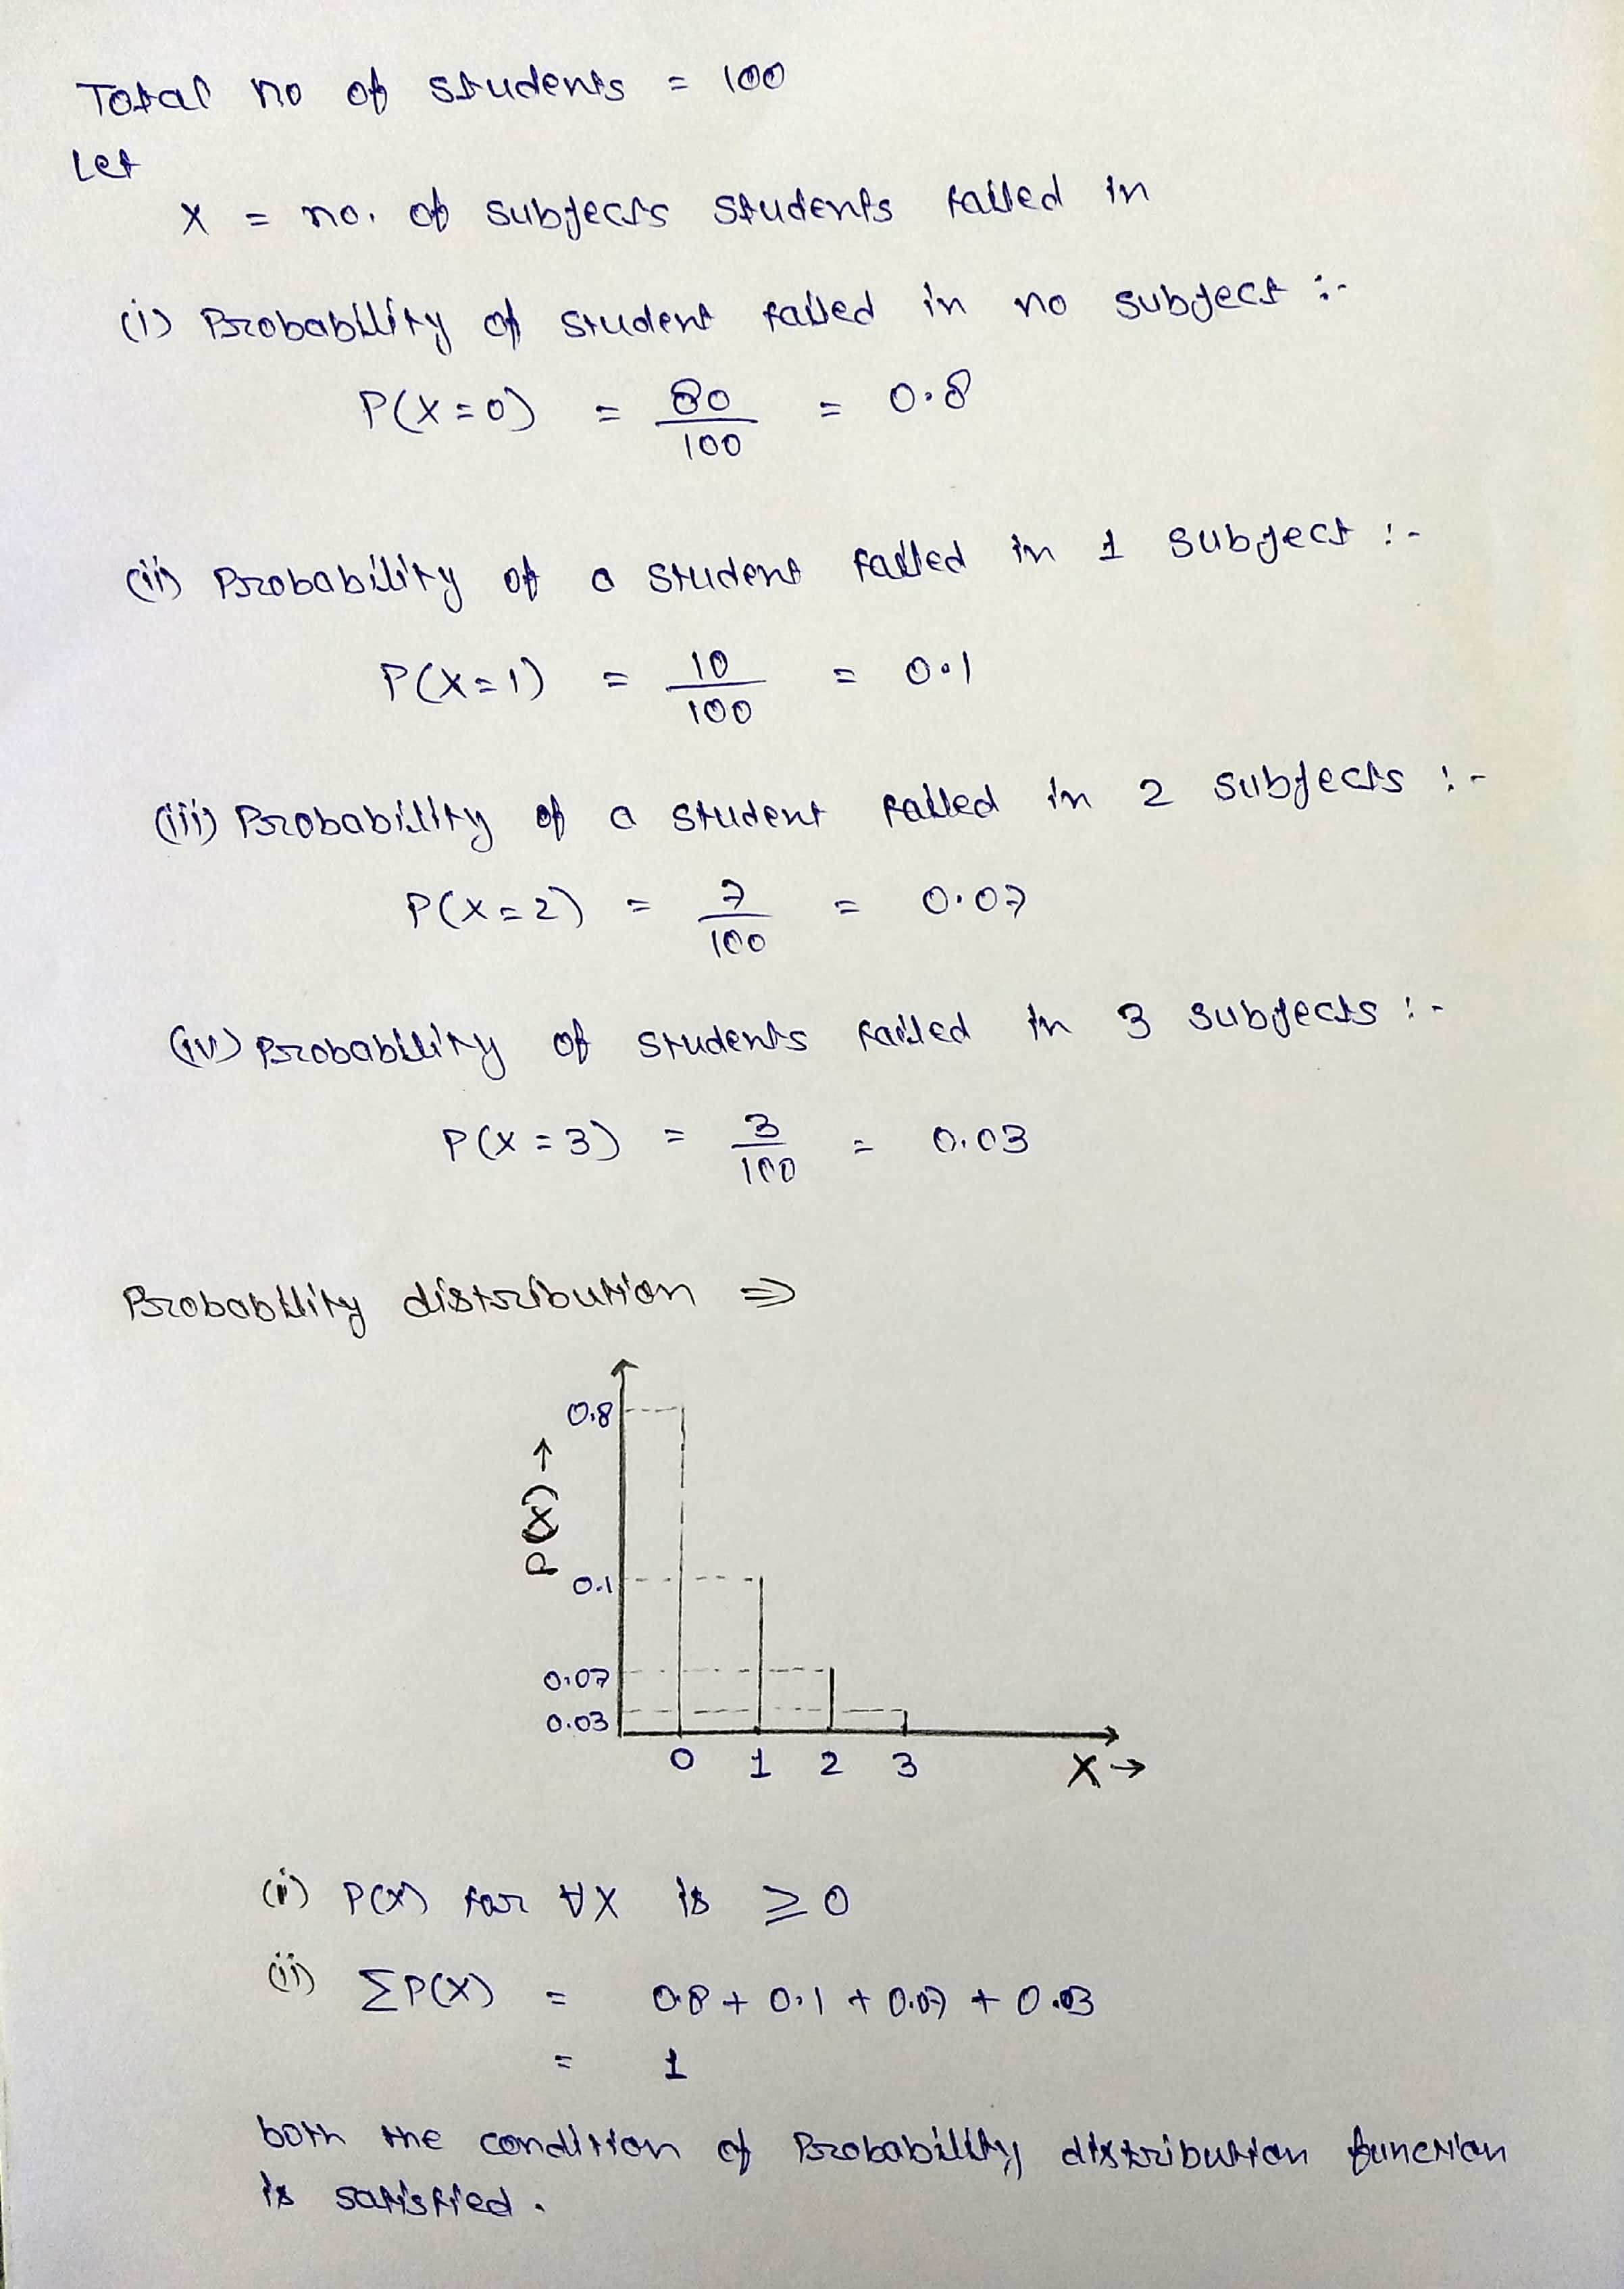 Total no of students = 100
Let
X = no. of subjects students failed in
(i) Probability of student failed in no subject :-
P(X=0) = 80/100 = 0.8
(ii) Probability of a student failed in 1 subject :-
P(X=1) = 10/100 = 0.1
(iii) Probability of a student failed in 2 subjects :-
P(X=2) = 7/100 = 0.07
(iv) Probability of students failed in 3 subjects :-
P(X=3) = 3/100 = 0.03
Probability distribution ⇒
0.8
P(X) →
0.1
0.07
0.03
0 1 2 3 X →
(i) P(X) for ∀X is ≥ 0
(ii) ΣP(X) = 0.8 + 0.1 + 0.07 + 0.03
= 1
both the condition of Probability distribution function
is satisfied.